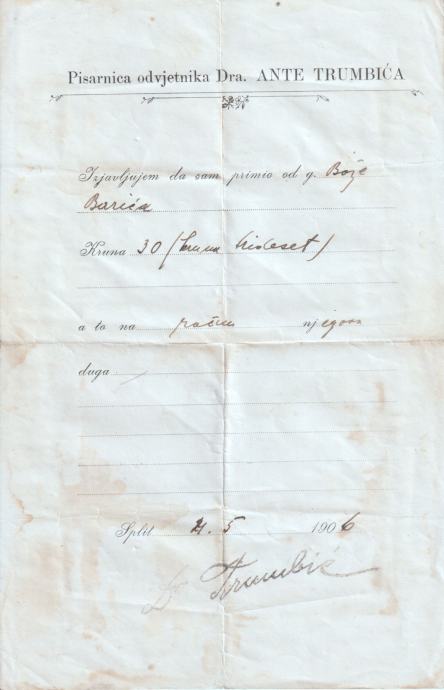 Pisarnica odvjetnika Dra. ANTE TRUMBIĆA
Izjavljujem da sam primio od g. Bože
Barića
Kruna 30 (kruna trideset)
a to na račun njegova
duga
Split 4. 5 1906
Dr Trumbić